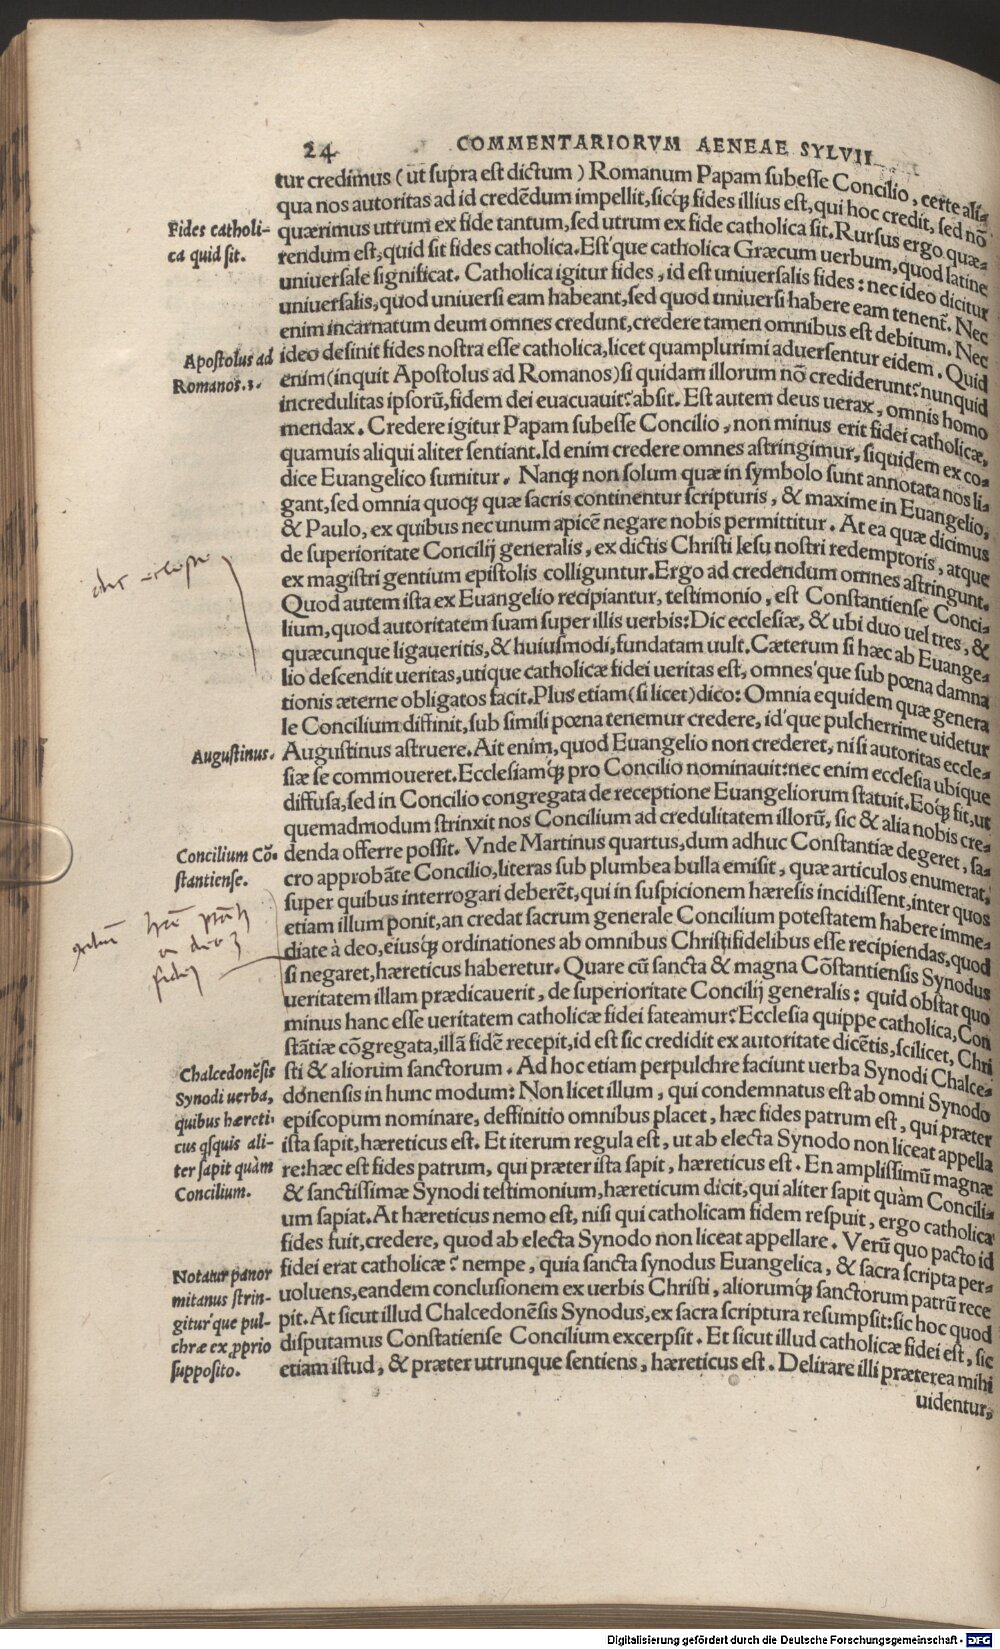 24 COMMENTARIORVM AENEAE SYLVII
tur credimus (ut supra est dictum) Romanum Papam subesse Concilio, certe ali-
qua nos autoritas ad id credēdum impellit, sicq́; fides illius est, qui hoc credit, sed nō
quærimus utrum ex fide tantum, sed utrum ex fide catholica sit. Rursus ergo quæ-
rendum est, quid sit fides catholica. Est' que catholica Græcum uerbum, quod latine
uniuersale significat. Catholica igitur fides, id est uniuersalis fides: nec ideo dicitur
uniuersalis, quod uniuersi eam habeant, sed quod uniuersi habere eam tenent̄. Nec
enim incarnatum deum omnes credunt, credere tamen omnibus est debitum. Nec
ideo desinit fides nostra esse catholica, licet quamplurimi aduersentur eidem. Quid
enim (inquit Apostolus ad Romanos) si quidam illorum nō crediderunt? nunquid
incredulitas ipsorū, fidem dei euacuauit? absit. Est autem deus uerax, omnis homo
mendax. Credere igitur Papam subesse Concilio, non minus erit fidei catholicæ,
quamuis aliqui aliter sentiant. Id enim credere omnes astringimur, siquidem ex co-
dice Euangelico sumitur. Nanq; non solum quæ in symbolo sunt annotata nos li-
gant, sed omnia quoq; quæ sacris continentur scripturis, & maxime in Euangelio,
& Paulo, ex quibus nec unum apicē negare nobis permittitur. At ea quæ dicimus
de superioritate Concilij generalis, ex dictis Christi Iesu nostri redemptoris, atque
ex magistri gentium epistolis colliguntur. Ergo ad credendum omnes astringunt.
Quod autem ista ex Euangelio recipiantur, testimonio, est Constantiense Conci-
lium, quod autoritatem suam super illis uerbis: Dic ecclesiæ, & ubi duo uel tres, &
quæcunque ligaueritis, & huiusmodi, fundatam uult. Cæterum si hæc ab Euange-
lio descendit ueritas, utique catholicæ fidei ueritas est, omnes' que sub pœna damna
tionis æterne obligatos facit. Plus etiam (si licet) dico: Omnia equidem quæ genera
le Concilium diffinit, sub simili pœna tenemur credere, id' que pulcherrime uidetur
Augustinus astruere. Ait enim, quod Euangelio non crederet, nisi autoritas eccle-
siæ se commoueret. Ecclesiamq́; pro Concilio nominauit: nec enim ecclesia ubique
diffusa, sed in Concilio congregata de receptione Euangeliorum statuit. Eoq́; fit, ut
quemadmodum strinxit nos Concilium ad credulitatem illorū, sic & alia nobis cre-
denda offerre possit. Vnde Martinus quartus, dum adhuc Constantiæ degeret, sa-
cro approbāte Concilio, literas sub plumbea bulla emisit, quæ articulos enumerat,
super quibus interrogari deberēt, qui in suspicionem hæresis incidissent, inter quos
etiam illum ponit, an credat sacrum generale Concilium potestatem habere imme-
diate à deo, eiusq́; ordinationes ab omnibus Christifidelibus esse recipiendas, quod
si negaret, hæreticus haberetur. Quare cū sancta & magna Cōstantiensis Synodus
ueritatem illam prædicauerit, de superioritate Concilij generalis: quid obstat quo
minus hanc esse ueritatem catholicæ fidei fateamur? Ecclesia quippe catholica, Con
stātiæ cōgregata, illā fidē recepit, id est sic credidit ex autoritate dicētis, scilicet, Chri
sti & aliorum sanctorum. Ad hoc etiam perpulchre faciunt uerba Synodi Chalce-
donensis in hunc modum: Non licet illum, qui condemnatus est ab omni Synodo
episcopum nominare, deffinitio omnibus placet, hæc fides patrum est, qui præter
ista sapit, hæreticus est. Et iterum regula est, ut ab electa Synodo non liceat appella
re: hæc est fides patrum, qui præter ista sapit, hæreticus est. En amplissimū magnæ
& sanctissimæ Synodi testimonium, hæreticum dicit, qui aliter sapit quàm Concili-
um sapiat. At hæreticus nemo est, nisi qui catholicam fidem respuit, ergo catholica
fides fuit, credere, quod ab electa Synodo non liceat appellare. Verū quo pacto id
fidei erat catholicæ? nempe, quia sancta synodus Euangelica, & sacra scripta per-
uoluens, eandem conclusionem ex uerbis Christi, aliorumq́; sanctorum patrū rece
pit. At sicut illud Chalcedonēsis Synodus, ex sacra scriptura resumpsit: sic hoc quod
disputamus Constatiense Concilium excerpsit. Et sicut illud catholicæ fidei est, sic
etiam istud, & præter utrunque sentiens, hæreticus est. Delirare illi præterea mihi
uidentur,
Fides catholi-
ca quid sit.
Apostolus ad
Romanos. 3.
Augustinus.
Concilium Cō-
stantiense.
Chalcedonēsis
Synodi uerba,
quibus hæreti-
cus qsquis ali-
ter sapit quàm
Concilium.
Notatur panor
mitanus strin-
gitur' que pul-
chræ ex ꝓprio
supposito.
Digitalisierung gefördert durch die Deutsche Forschungsgemeinschaft - DFG